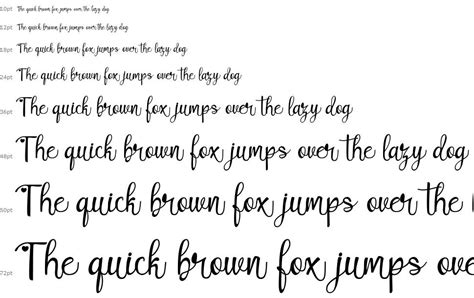 10pt The quick brown fox jumps over the lazy dog
12pt The quick brown fox jumps over the lazy dog
18pt The quick brown fox jumps over the lazy dog
24pt The quick brown fox jumps over the lazy dog
36pt The quick brown fox jumps over the lazy dog
48pt The quick brown fox jumps over the lazy dog
60pt The quick brown fox jumps over the l
72pt The quick brown fox jumps ove